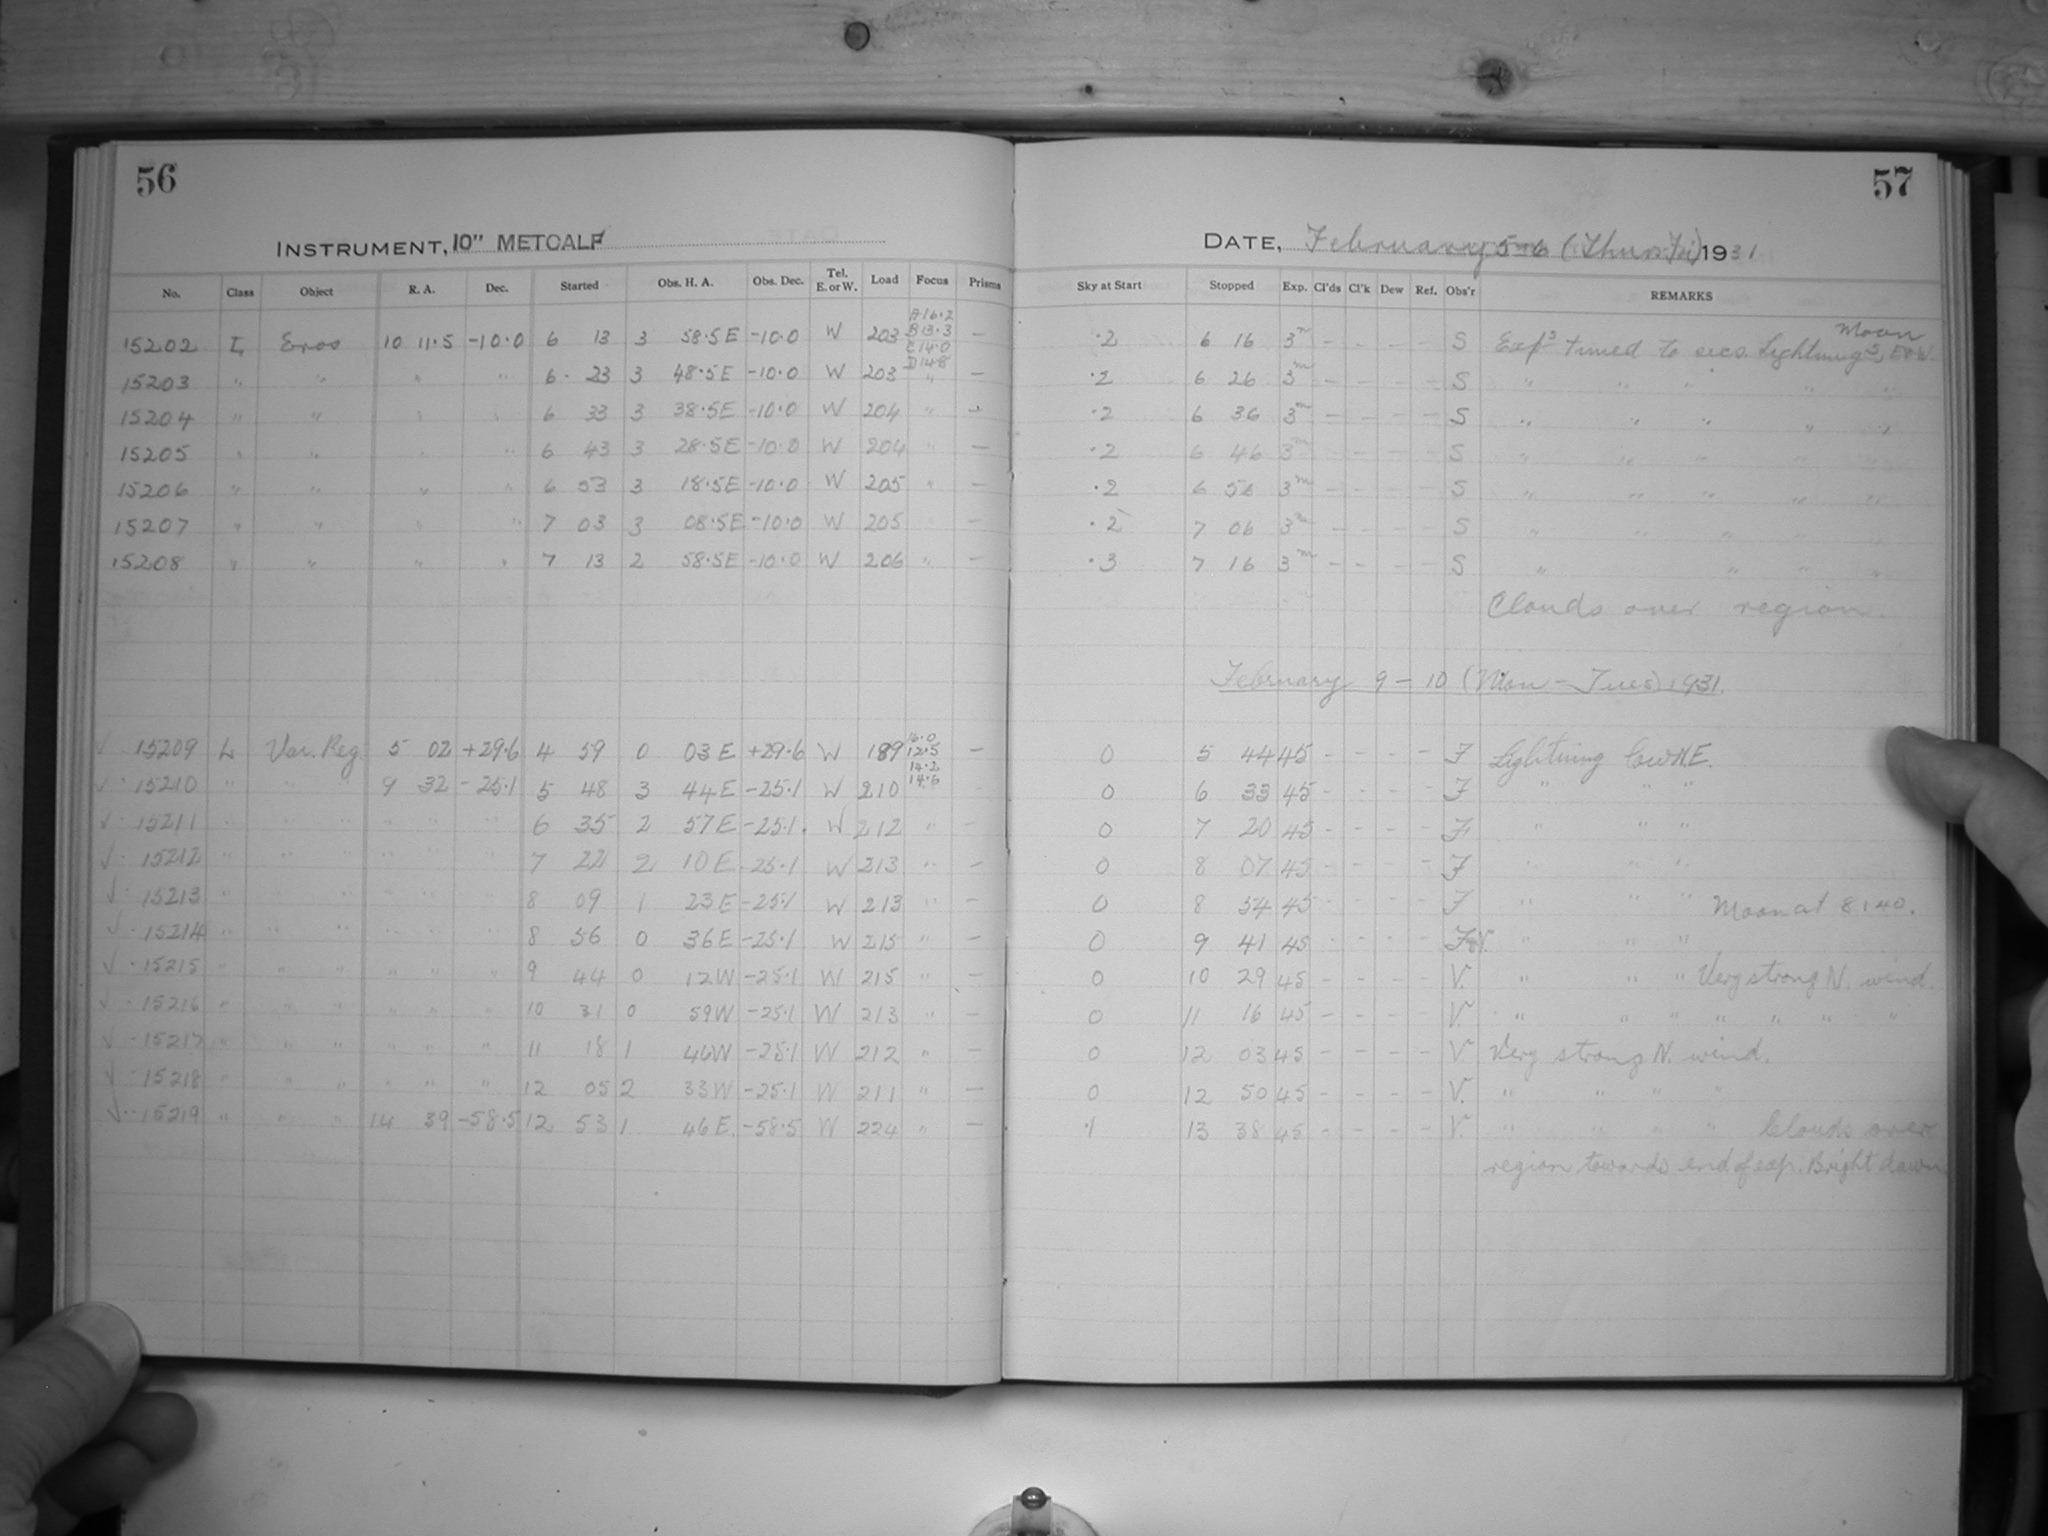 56
57
INSTRUMENT, 10" METCALF
DATE, February 5-6 (Thurs-Fri) 1931
No. Class Object R. A. Dec. Started Obs. H. A. Obs. Dec. Tel. E. or W. Load Focus Prisms Sky at Start Stopped Exp. Cl'ds Cl'k Dew Ref. Obs'r REMARKS
15202 L Eros 10 11.5 -10.0 6 13 3 58.5 E -10.0 W 203 A 16.2 B 13.3 C 14.0 D 14.8 — .2 6 16 3m - - - - S Exps timed to secs. Lightning S, E & W. Moon
15203 " " " " 6 23 3 48.5 E -10.0 W 203 " — .2 6 26 3m - - - - S " " " " "
15204 " " " " 6 33 3 38.5 E -10.0 W 204 " — .2 6 36 3m - - - - S " " " " "
15205 " " " " 6 43 3 28.5 E -10.0 W 204 " — .2 6 46 3m - - - - S " " " " "
15206 " " " " 6 53 3 18.5 E -10.0 W 205 " — .2 6 56 3m - - - - S " " " " "
15207 " " " " 7 03 3 08.5 E -10.0 W 205 " — .2 7 06 3m - - - - S " " " " "
15208 " " " " 7 13 2 58.5 E -10.0 W 206 " — .3 7 16 3m - - - - S " " " "
Clouds over region.
February 9 - 10 (Mon - Tues) 1931.
√ 15209 L Var. Reg. 5 02 +29.6 4 59 0 03 E +29.6 W 189 16.0 12.5 14.2 14.6 — 0 5 44 45 - - - - F Lightning low N.E.
√ 15210 " " " 9 32 -25.1 5 48 3 44 E -25.1 W 210 0 6 33 45 - - - - F " " "
√ 15211 " " " " " " 6 35 2 57 E -25.1 W 212 " — 0 7 20 45 - - - - F " " "
√ 15212 " " " " " " 7 22 2 10 E -25.1 W 213 " — 0 8 07 45 - - - - F " " "
√ 15213 " " " " " " 8 09 1 23 E -25.1 W 213 " — 0 8 54 45 - - - - F " " " Moon at 8:40.
√ 15214 " " " " " " 8 56 0 36 E -25.1 W 215 " — 0 9 41 45 - - - - F&V. " " "
√ 15215 " " " " " " 9 44 0 12 W -25.1 W 215 " — 0 10 29 45 - - - - V. " " " Very strong N. wind.
√ 15216 " " " " " " 10 31 0 59 W -25.1 W 213 " — 0 11 16 45 - - - - V. " " " " " " "
√ 15217 " " " " " " 11 18 1 46 W -25.1 W 212 " — 0 12 03 45 - - - - V Very strong N. wind.
√ 15218 " " " " " " 12 05 2 33 W -25.1 W 211 " — 0 12 50 45 - - - - V. " " " "
√ 15219 " " " 14 39 -58.5 12 53 1 46 E. -58.5 W 224 " — .1 13 38 45 - - - - V. " " " " Clouds over
region towards end of exp. Bright dawn